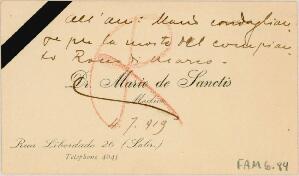 All'am: Mario condoglian-
ze per la morte del compian-
to
Dr. Mario de Sanctis
Medico
4.7.919
Rua Liberdade 26 (Salir.)
Telephone 4041
FAM 6.84